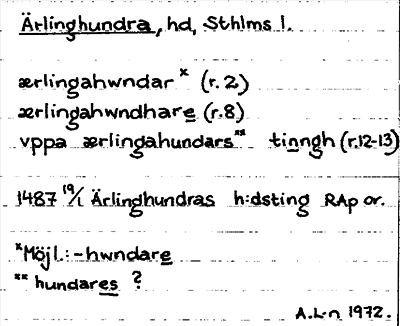 Ärlinghundra, hd, Sthlms l.
ærlingahwndar* (r.2)
ærlingahwndhare (r.8)
vppa ærlingahundars** tinngh (r.12-13)
1487 19/1 Ärlinghundras h:dsting RAp or.
*Möjl.: -hwndare
** hundares ?
A.L-n 1972.